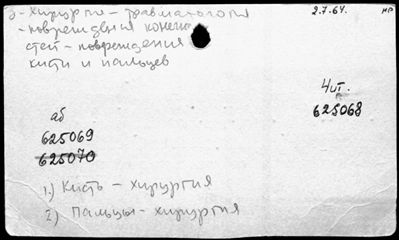 з - хирургия - травматология
2.7.64. нр
- повреждения конечно
стей - повреждения
кисти и пальцев
4 чт.
625068
аб
625069
625070
1) Кисть - хирургия
2) Пальцы - хирургия